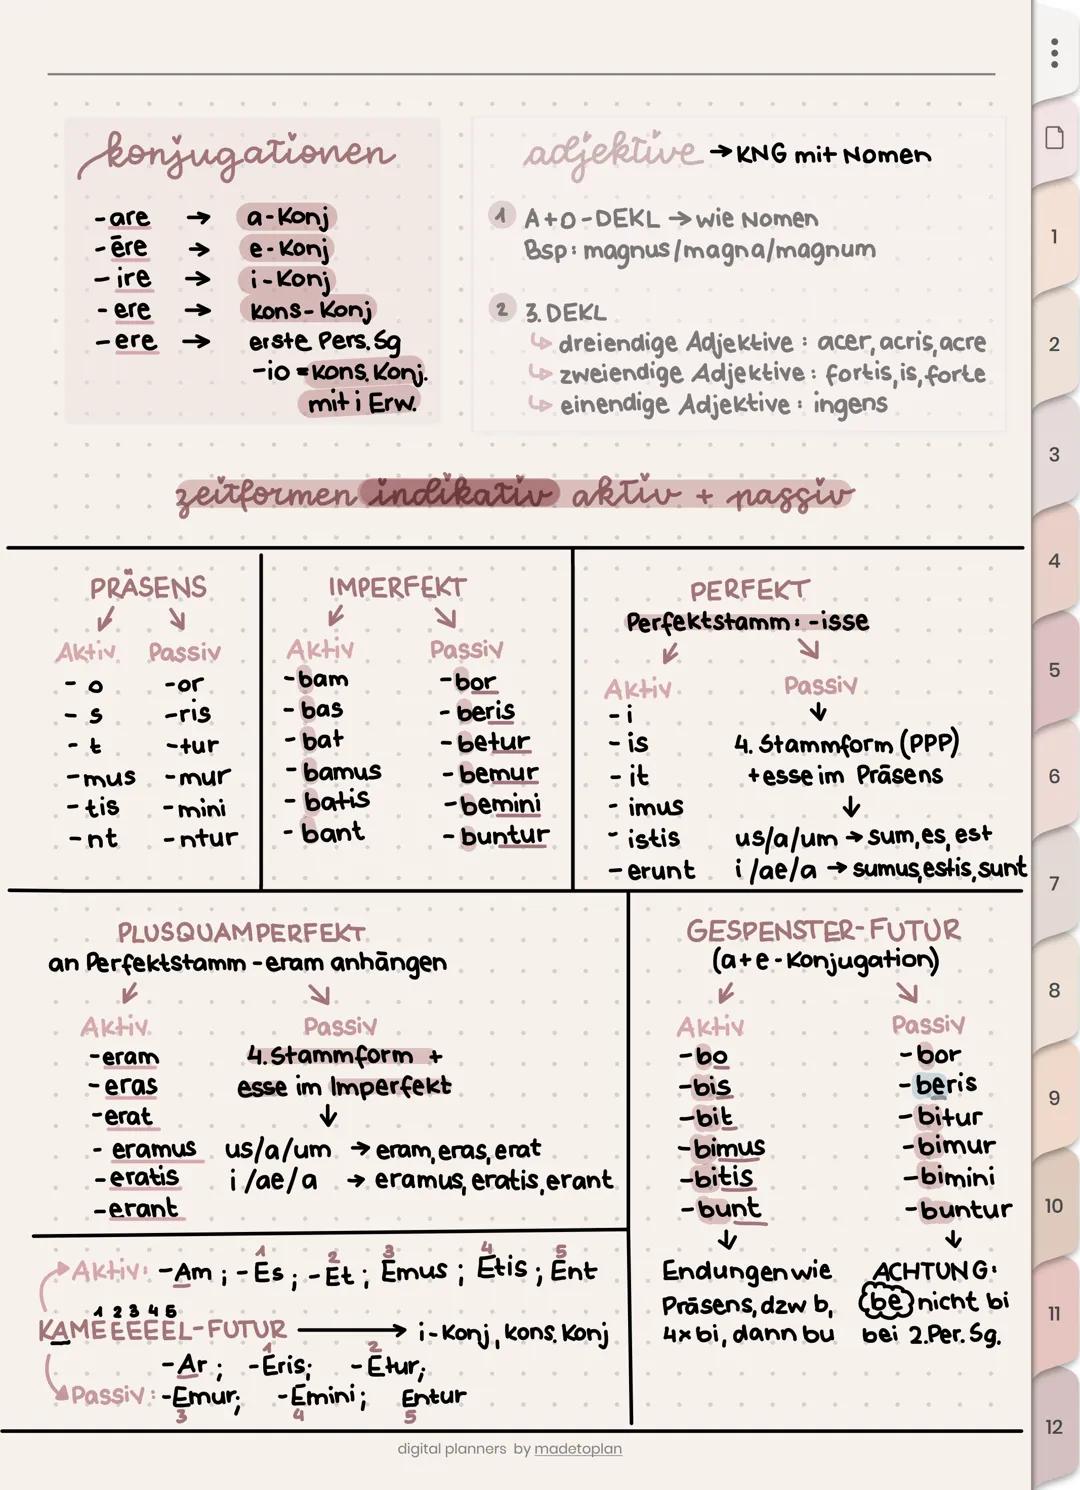 konjugationen
-are → a-Konj
-ēre → e-Konj
-ire → i-Konj
-ere → kons-Konj
-ere → erste Pers. Sg
-io = Kons. Konj.
mit i Erw.
adjektive → KNG mit Nomen
1 A+O-DEKL → wie Nomen
Bsp: magnus/magna/magnum
2 3. DEKL
↳ dreiendige Adjektive: acer, acris, acre
↳ zweiendige Adjektive: fortis, is, forte
↳ einendige Adjektive: ingens
zeitformen indikativ aktiv + passiv
PRÄSENS
Aktiv Passiv
-o -or
-s -ris
-t -tur
-mus -mur
-tis -mini
-nt -ntur
IMPERFEKT
Aktiv Passiv
-bam -bor
-bas -beris
-bat -betur
-bamus -bemur
-batis -bemini
-bant -buntur
PERFEKT
Perfektstamm: -isse
Aktiv Passiv
-i ↓
-is 4. Stammform (PPP)
-it +esse im Präsens
-imus ↓
-istis us/a/um → sum, es, est
-erunt i/ae/a → sumus, estis, sunt
PLUSQUAMPERFEKT
an Perfektstamm -eram anhängen
Aktiv Passiv
-eram 4. Stammform +
-eras esse im Imperfekt
-erat ↓
-eramus us/a/um → eram, eras, erat
-eratis i/ae/a → eramus, eratis, erant
-erant
GESPENSTER-FUTUR
(a+e-Konjugation)
Aktiv Passiv
-bo -bor
-bis -beris
-bit -bitur
-bimus -bimur
-bitis -bimini
-bunt -buntur
Endungen wie ACHTUNG:
Präsens, dzw b, be nicht bi
4x bi, dann bu bei 2. Per. Sg.
1 2 3 4 5
Aktiv: -Am; -Es; -Et; Emus; Etis; Ent
1 2 3 4 5
KAMEEEEEL-FUTUR → i-Konj, kons. Konj
1 2
-Ar; -Eris; -Etur;
Passiv: -Emur; -Emini; Entur
3 4 5
digital planners by madetoplan
1
2
3
4
5
6
7
8
9
10
11
12